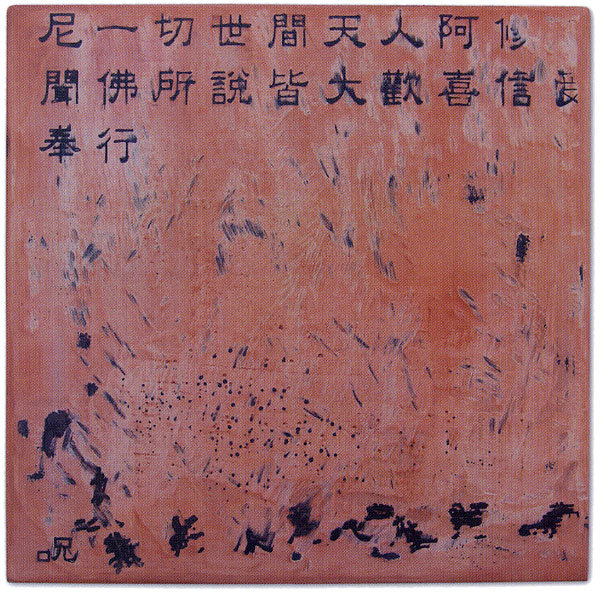 尼一切世間天人阿修
聞佛所說皆大歡喜信受
奉行
呪